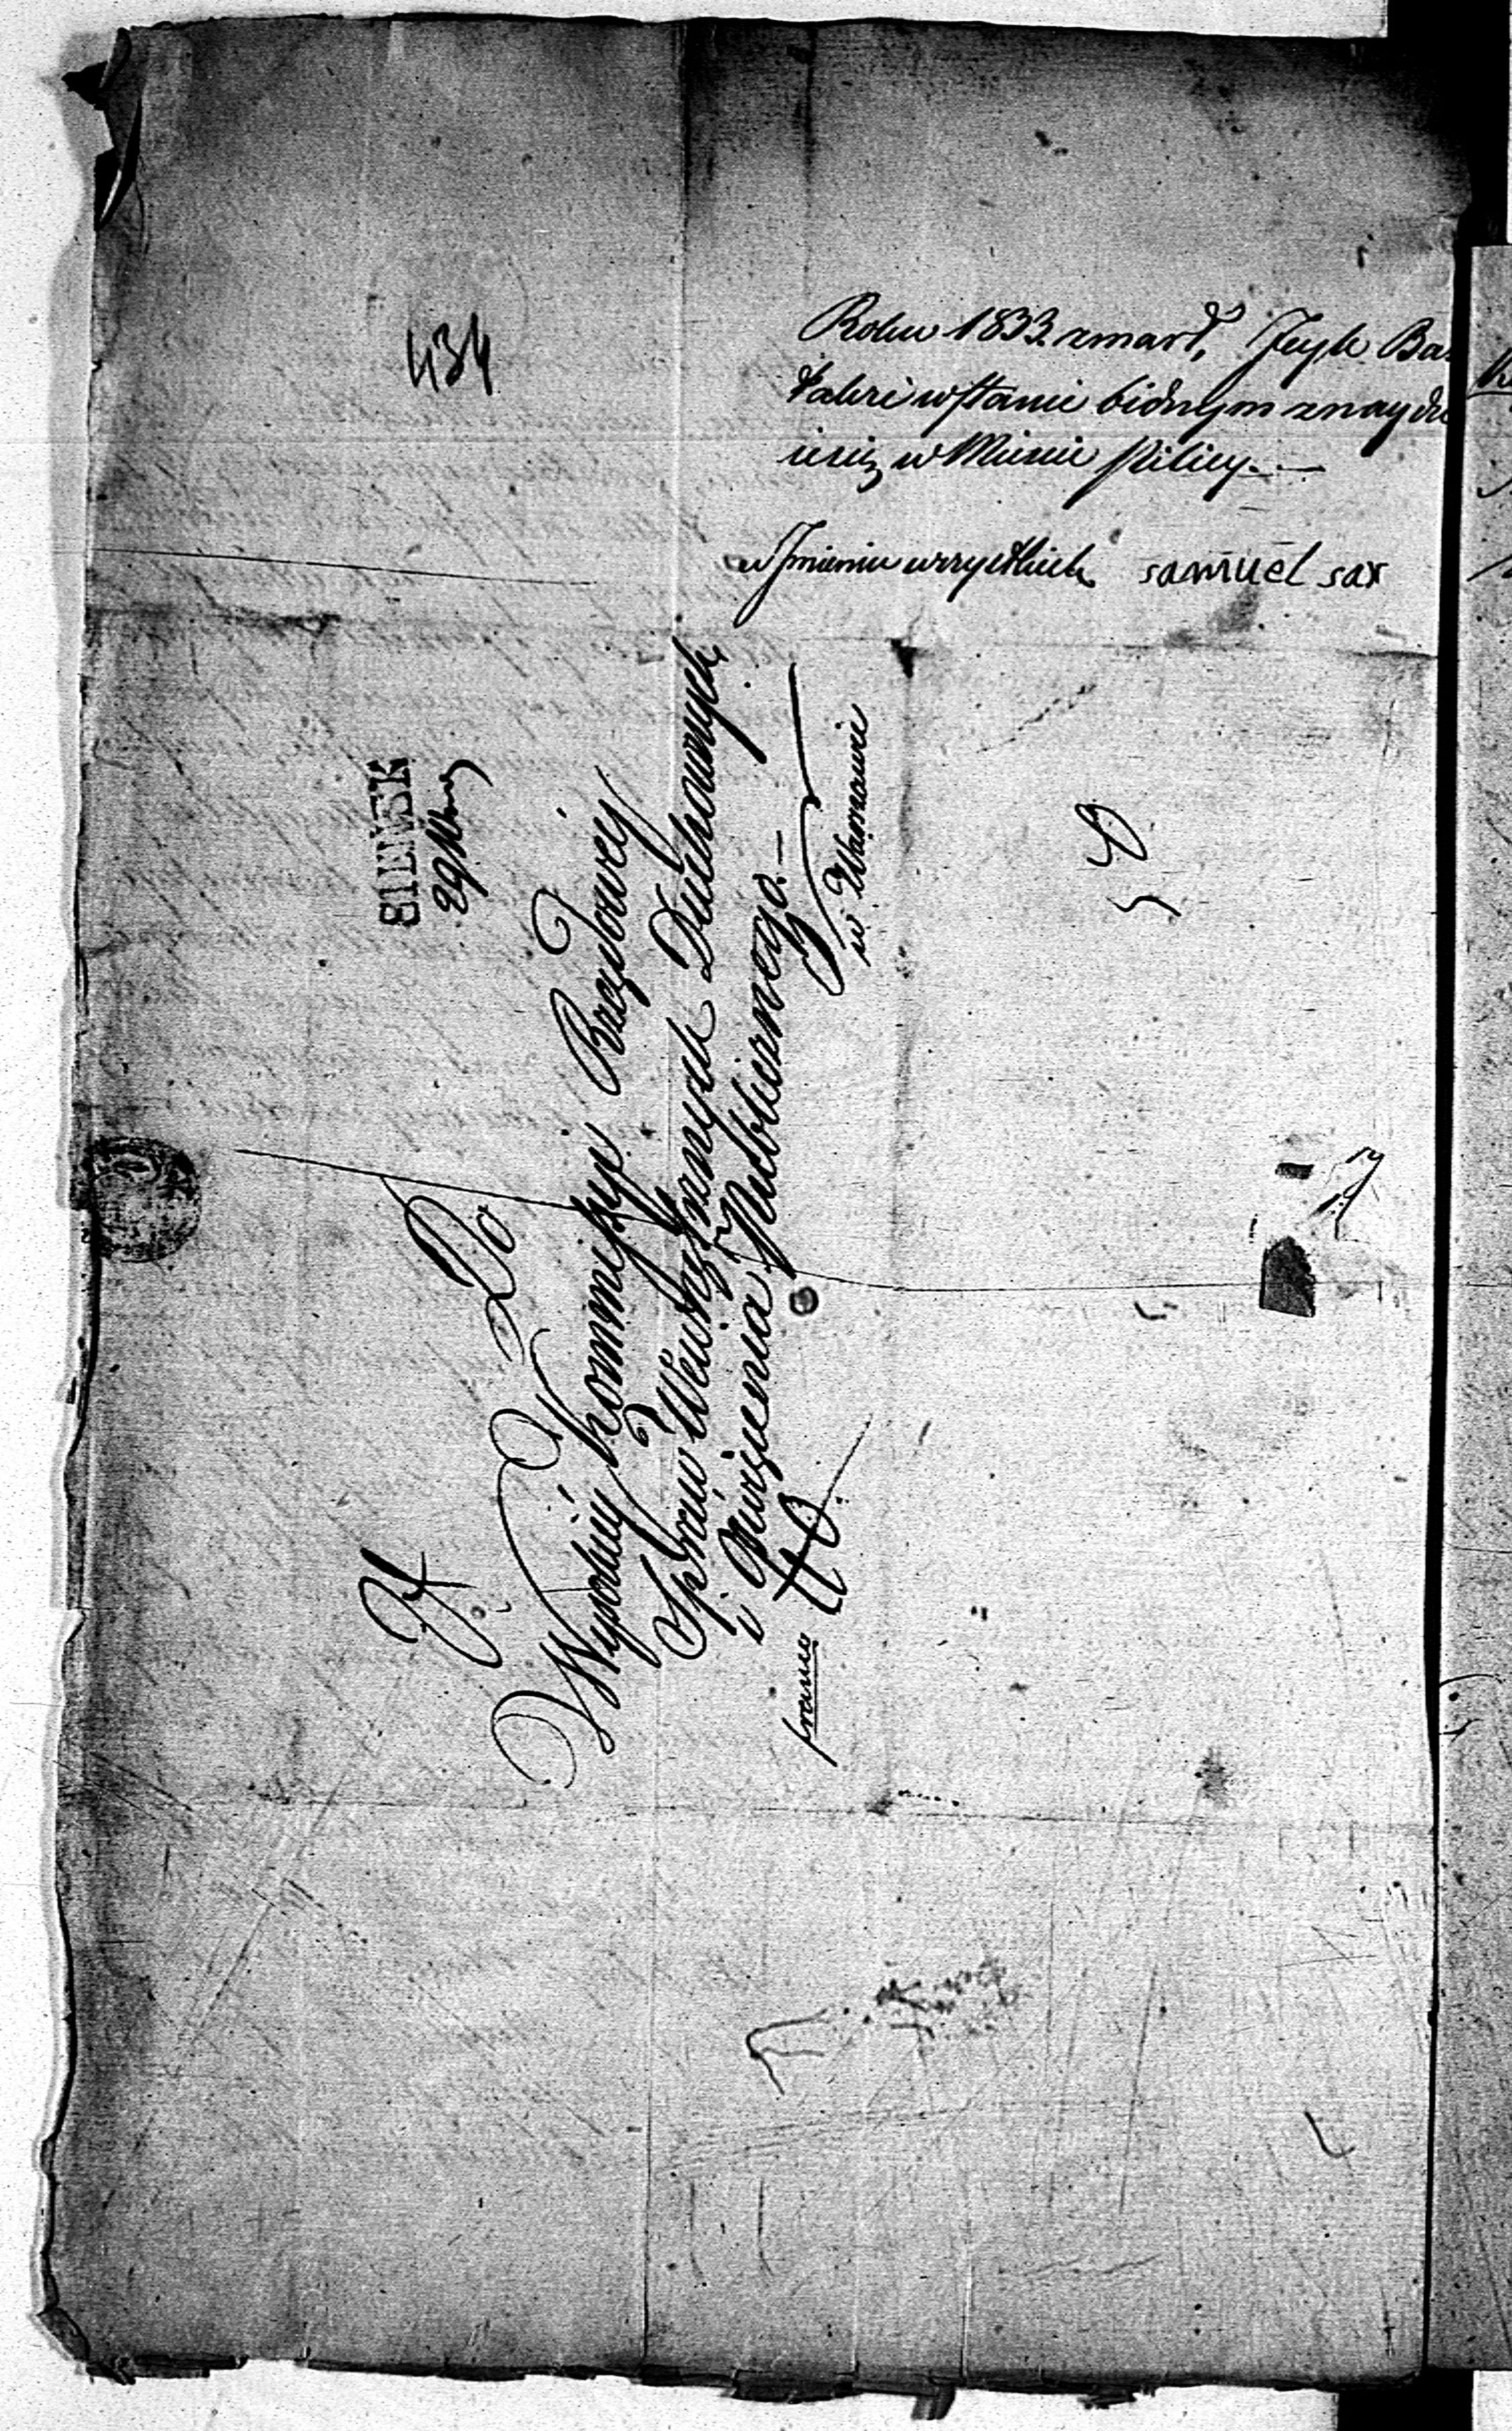 434
Roku 1833 zmarł, Jeyk Ba
także w stanie biednym znaydu
iesię w Miescie Pilicy.—
w Jmieniu wszystkich samuel sax
SIEWSK
29
Do
Wysokiéy Kommissyi Rządowéy
Spraw Wewnętrznych Duchownych
i Oświecenia Publicznego.—
w Warszawie
franco